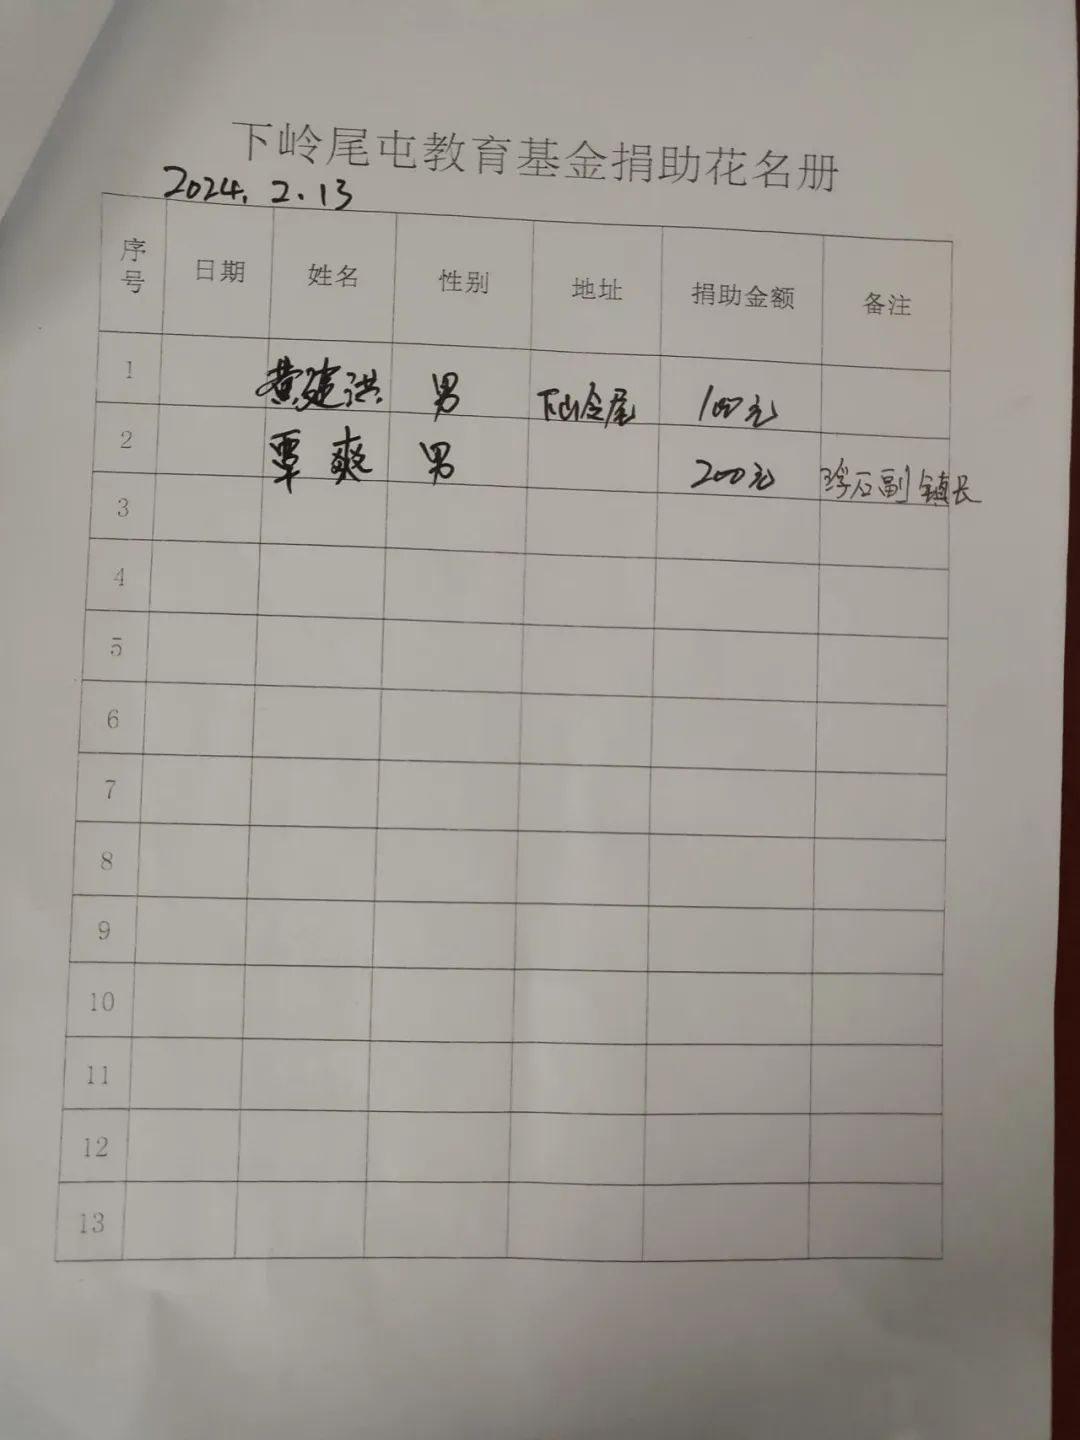 下岭尾屯教育基金捐助花名册
2024.2.13
序号 日期 姓名 性别 地址 捐助金额 备注
1 黄建洪 男 下岭尾 100元
2 覃爽 男 200元 浮石副镇长
3
4
5
6
7
8
9
10
11
12
13